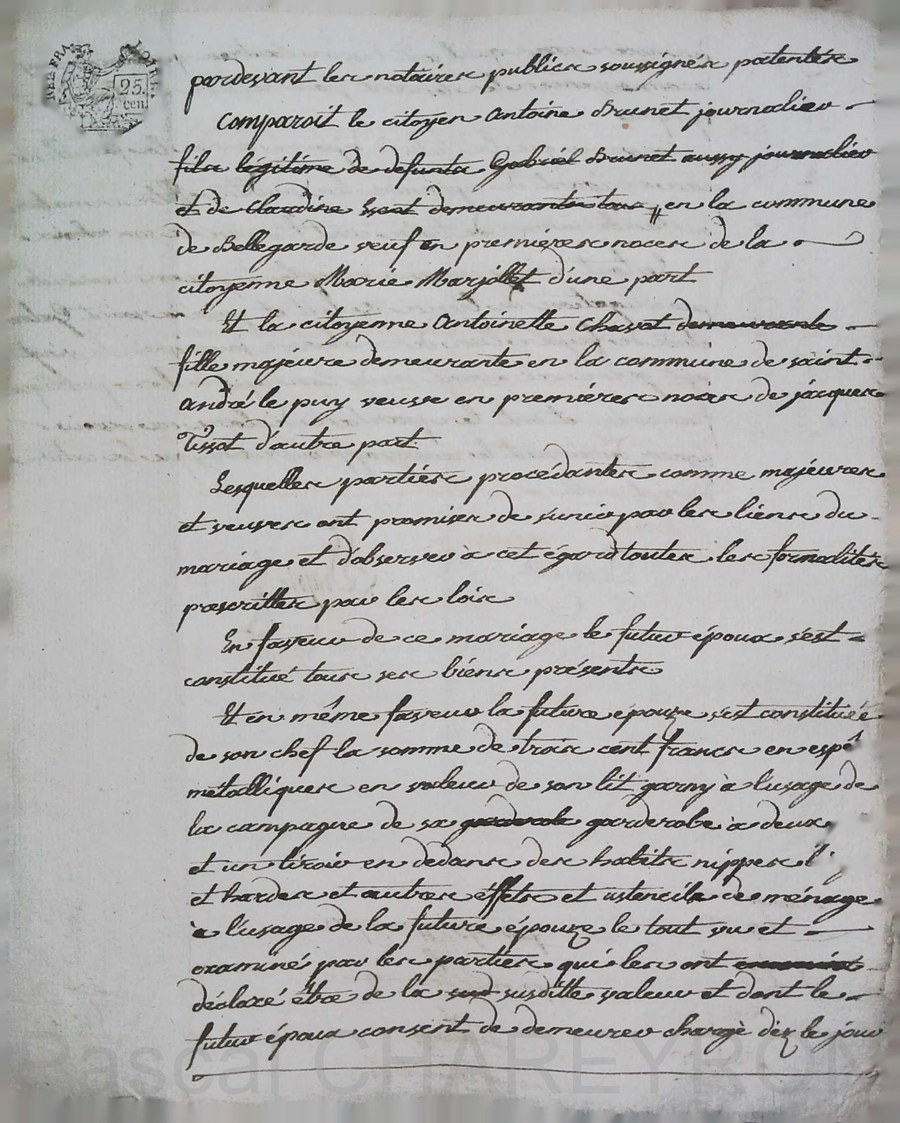 REP. FRA.
25.
cen.
pardevant les notaires publics soussignés patentés
Comparoit le citoyen antoine Brunet journalier
fils légitime de defunts Gabriël Brunet aussy journalier
et de Claudine demeurants tous en la commune
de Bellegarde veuf en premieres noces de la
citoyenne Marie Marjollet d'une part
Et la citoyenne antoinette Chavat demeurante
fille majeure demeurante en la commune de saint
andré le puy veuve en premières noces de jacques
Tissot d'autre part
Lesquelles parties procédantes comme majeures
et veuves ont promises de s'unir par les liens du
mariage et d'observer à cet égard toutes les formalités
prescrittes par les lois
En faveur de ce mariage le futur époux s'est
constitué tous ses biens présents
Et en même faveur la future épouze s'est constituée
de son chef la somme de trois cent francs en espè
métalliques en valeur de son lit garny à l'usage de
la campagne de sa garderobe garderobe à deux
et un tiroir en dedans des habits nippes
et hardes et autres effets et ustencils de ménage
à l'usage de la future épouze le tout vu et
examiné par les parties qui les ont
déclaré être de la susditte valeur et dont le
futur époux consent de demeurer chargé dez le jour
Pascal CHAREYRON